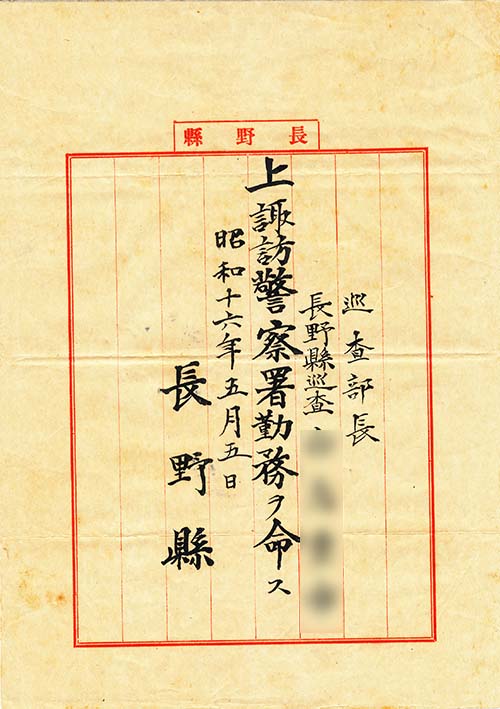 長野縣
巡查部長
長野縣巡查
上諏訪警察署勤務ヲ命ス
昭和十六年五月五日
長野縣